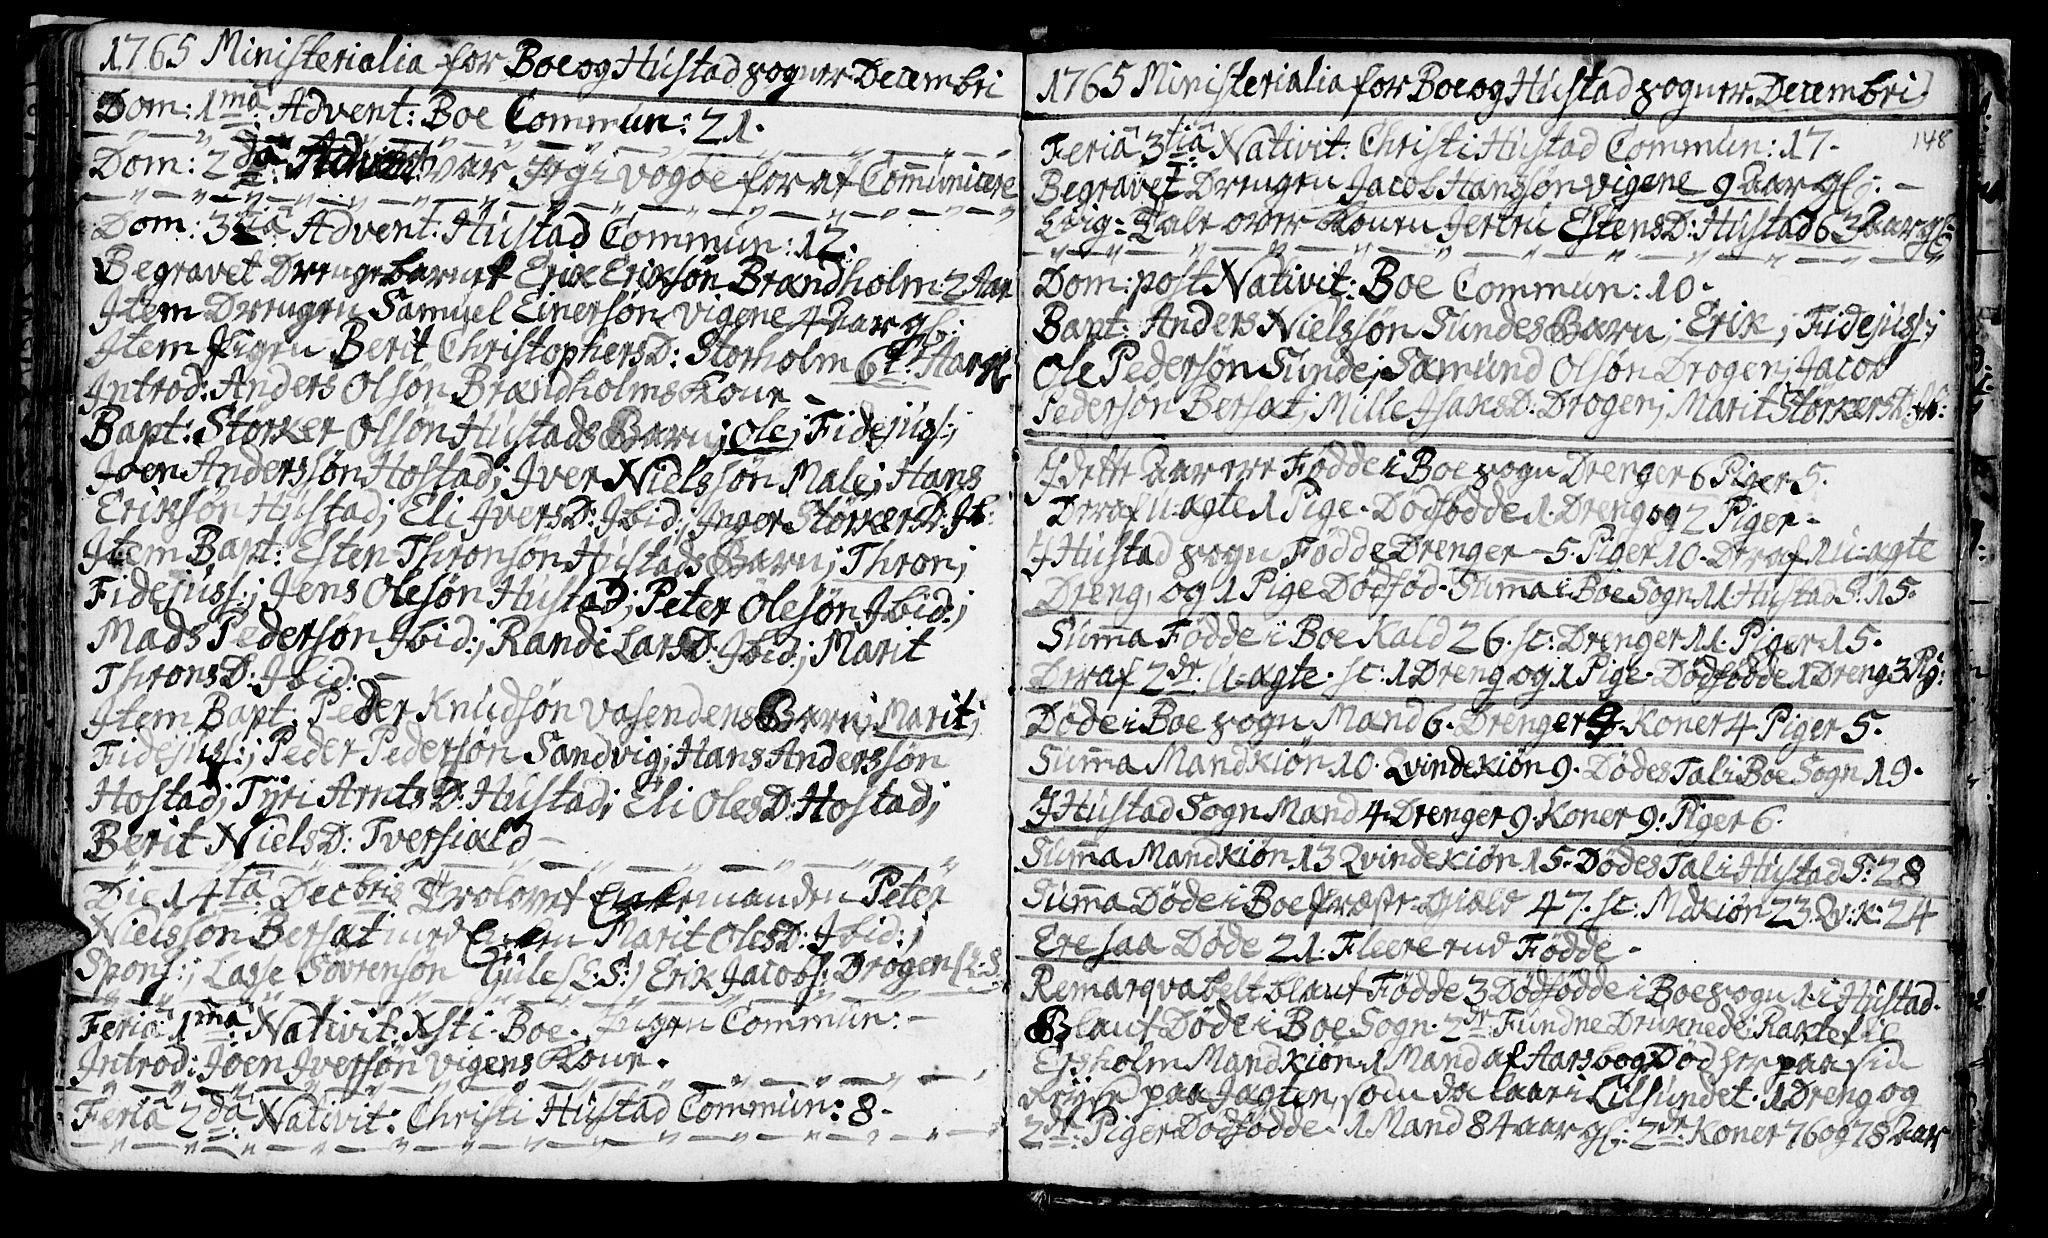 1765 Ministerialia for Boe og Hustad sogner Decembri
Dom: 1ma Advent: Boe Commun: 21.
Dom: 2da Advent var Jeg i Vogöe for at Communicere
Dom: 3tia Advent: Hustad Commun: 12.
Begravet Drengebarnet Erik Eriksön Brandholm 2 Aar
Item Drengen Samuel Einersön Vigene 4 Aar gl:
Item Pigen Berit ChristophersD: Storholm 6t. Aar gl
Introd: Anders Olsön Brandholms Kone –
Bapt: Störker Olsön Hustads Barn; Ole; Fidejuss:;
Joen Anderssön Hostad; Iver Nielssön Male; Hans
Eriksön Hustad; Eli IversD: Ibid:; Inger StörkersD: Ib:
Item Bapt: Esten Thronsön Hustads Barn; Thron;
Fidejuss:; Jens Olesön Hustad; Peter Olesön Ibid:;
Mads Pedersön Ibid:; Randi LarsD: Ibid:; Marit
ThronsD: Ibid: –
Item Bapt: Peder Knudsön Vasendens Barn; Marit;
Fidejuss:; Peder Pedersön Sandvig; Hans Anderssön
Hostad; Tyri ArntsD: Hustad; Eli OlesD: Hostad;
Berit NielsD: Tversiald –
Die 14ta Decbris Trolovet Enkemanden Peter
Nielssön Bersat med Enken Marit OlesD: Ibid:;
Spons:; Lasse Sövrensön Gule (L:S:) Erik Jacobs: Drogen (L:S
Feria 1ma Nativit: Xsti Boe. Ingen Commun: –
Introd: Joen Iversön Vigens Kone.
Feriâ 2da Nativit: Christi Hustad Commun: 8.
1765 Ministerialia for Boe og Hustad sogner. Decembri
148
Feriâ 3tiâ Nativit: Christi Hustad Commun: 17.
Begravet Drengen Jacob Hanssön Vigene 9 Aar gl: –
Liig-Tale over Konen Jertru EstensD: Hustad 63 Aar gl:
Dom: post Nativit: Boe Commun: 10.
Bapt: Anders Nielssön Sundes Barn; Erik; Fidejuss:;
Ole Pedersön Sunde; Samund Olsön Drogen; Jacob
Pedersön Bersat; Mille IsaksD: Drogen; Marit StörkersD: Ib:
I dette Aar ere Födde i Boe sogn Drenger 6 Piger 5.
Deraf U-ægte 1 Pige. Dödfödde 1 Dreng og 2 Piger.
I Hustad sogn Födde Drenger 5 Piger 10. Deraf 1 U-ægte
Dreng, og 1 Pige Dödfød. Suma i Boe Sogn 11 Hustad S: 15.
Suma Födde i Boe Kald 26. sc: Drenger 11. Piger 15.
Deraf 2de U-ægte. sc: 1 Dreng og 1 Pige. Dödfödde 1 Dreng 3 Pig:
Döde i Boe sogn Mand 6. Drenger 4. Koner 4 Piger 5.
Suma Mandkiön 10. Qvindekiön 9. Dödes Tal i Boe Sogn 19.
I Hustad Sogn Mand 4. Drenger 9. Koner 9. Piger 6.
Suma Mandkiön 13 Qvindekiön 15. Dödes Tal i Hustad S: 28
Suma Döde i Boe Præste-Giald 47. sc: Mdkiön 23. Qv: K: 24
Ere saa Döde 21. Fleere end Födde.
Remarqvabelt blant Födde 3 Dödfödde i Boe sogn 1 i Hustad.
Blant Döde i Boe Sogn. 2de Fundne Druknede:
Ersholm Mandkiön 1 Mand af Aarsbog Död paa sin
Reyse paa Jagten, som da laae i Lilsundet. 1 Dreng og
2de Piger Dödfödde. 1 Mand 84 aar gl: 2de Koner 76 og 78 Aar